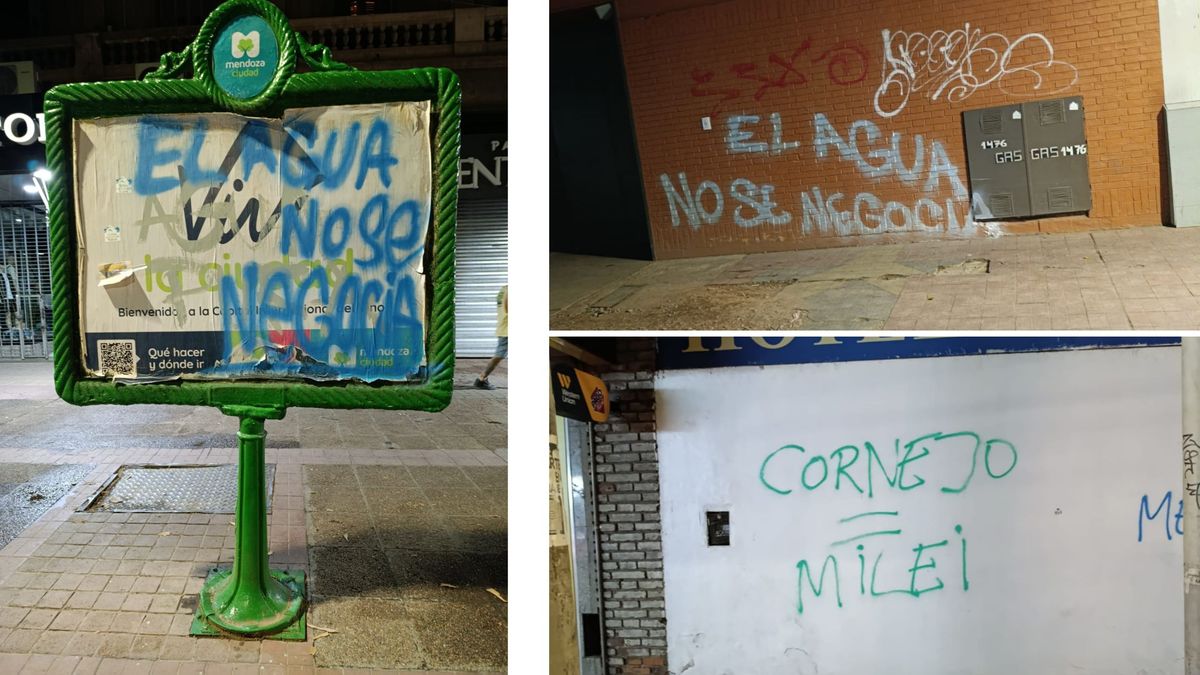 mendoza
ciudad
EL AGUA
NO SE
NEGOCIA
Vivi
la ciudad
Qué hacer
y dónde ir
mendoza
ciudad
EL AGUA
NO SE NEGOCIA
1476
GAS
GAS 1476
Western
Union
CORNEJO
=
MILEI